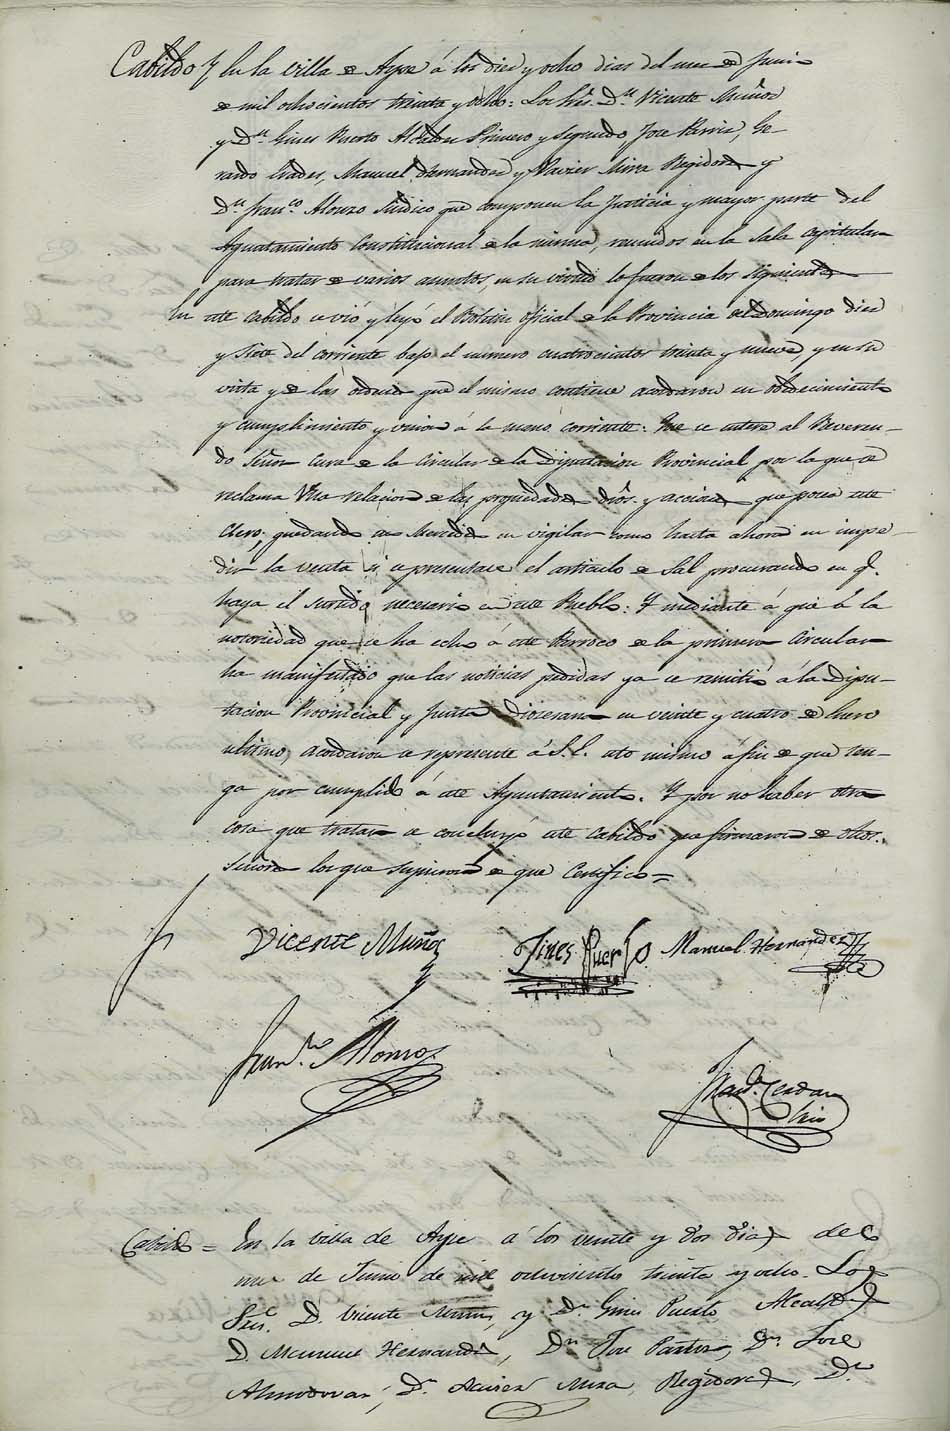 Cabildo En la villa de Aspe á los diez y ocho dias del mes de Junio
de mil ochocientos treinta y ocho: Los Sres. Dn. Vicente Muñoz
y Dn. Gines Puerto Alcaldes Primero y Segundo, Jose Pastor, Ge-
rardo Manuel Hernandez y Xavier Mira Regidores y
Dn. Franco. Alonzo Sindico que componen la Justicia y mayor parte del
Ayuntamiento Constitucional de la misma, reunidos en la Sala capitular
para tratar de varios asuntos, en su virtud lo fueron de los siguientes
En este cabildo se vió y leyó el Boletin oficial de la Provincia del Domingo diez
y siete del corriente bajo el numero cuatrocientos treinta y nueve y en su
vista y de las ordenes que el mismo contiene acordaron su obedecimiento
y cumplimiento y union á la mano corriente: Que se entere al Reveren-
do Señor Cura de la Circular de la Diputacion Provincial por la que se
reclama una relacion de las propiedades dros. y acciones que posea este
Clero; quedando sus Mercedes en vigilar como hasta ahora en impe-
dir la venta si se presentase el articulo de Sal procurando en q.
haya el surtido necesario en este Pueblo: Y mediante á que á la
notoriedad que se ha echo á este Parroco de la primera Circular
ha manifestado que las noticias pedidas ya se remitió á la Dipu-
tacion Provincial y Junta Diocesana en veinte y cuatro de Enero
ultimo, acordaron se represente á S.E. esto mismo á fin de que ten-
ga por cumplido á este Ayuntamiento. Y por no haber otra
cosa que tratar se concluyó este Cabildo que firmaron de dhos.
Señores los que supieron de que Certifico=
Vicente Muñoz Gines Puerto Manuel Hernandez
Fran.co Alonso
Cerdan
Srio
Cabildo = En la Villa de Aspe á los veinte y dos dias del
mes de Junio de mil ochocientos treinta y ocho. Los
Sres. D. Vicente Muñoz, y Dn. Gines Puerto Alcaldes
D. Manuel Hernandez, Dn. Jose Pastor, Dn. Jose
Almodovar, Dn. Xavier Mira Regidores, Dn.